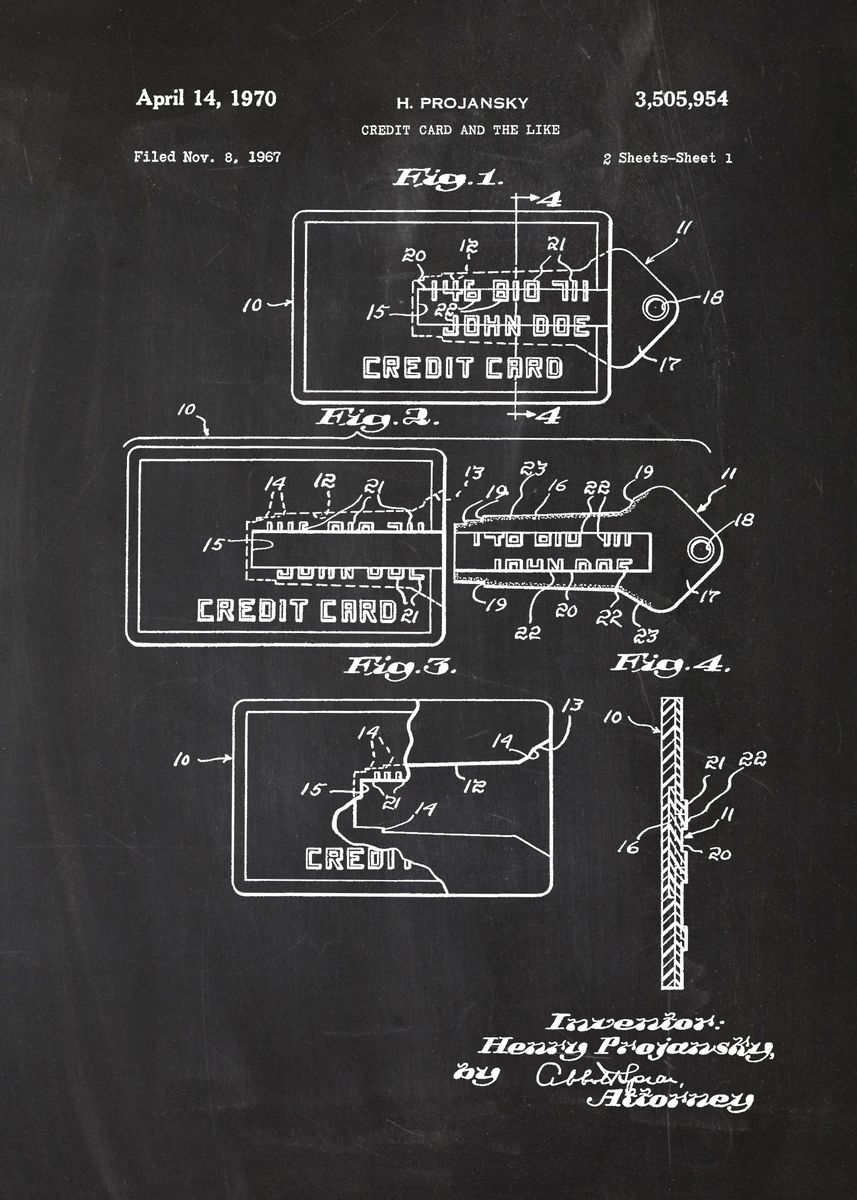 April 14, 1970
H. PROJANSKY
3,505,954
CREDIT CARD AND THE LIKE
Filed Nov. 8, 1967
2 Sheets-Sheet 1
Fig.1.
4
11
20
12
21
10
146 810 711
18
15
22
JOHN DOE
17
CREDIT CARD
4
Fig.2.
10
14
12
21
13
19
23
16
22
19
11
18
15
146 810 711
JOHN DOE
146 810 711
JOHN DOE
17
CREDIT CARD
21
19
22
20
22
23
Fig.3.
Fig.4.
13
10
14
14
10
21
22
15
21
12
14
11
16
20
CREDIT
Inventor:
Henry Projansky,
by
Attorney